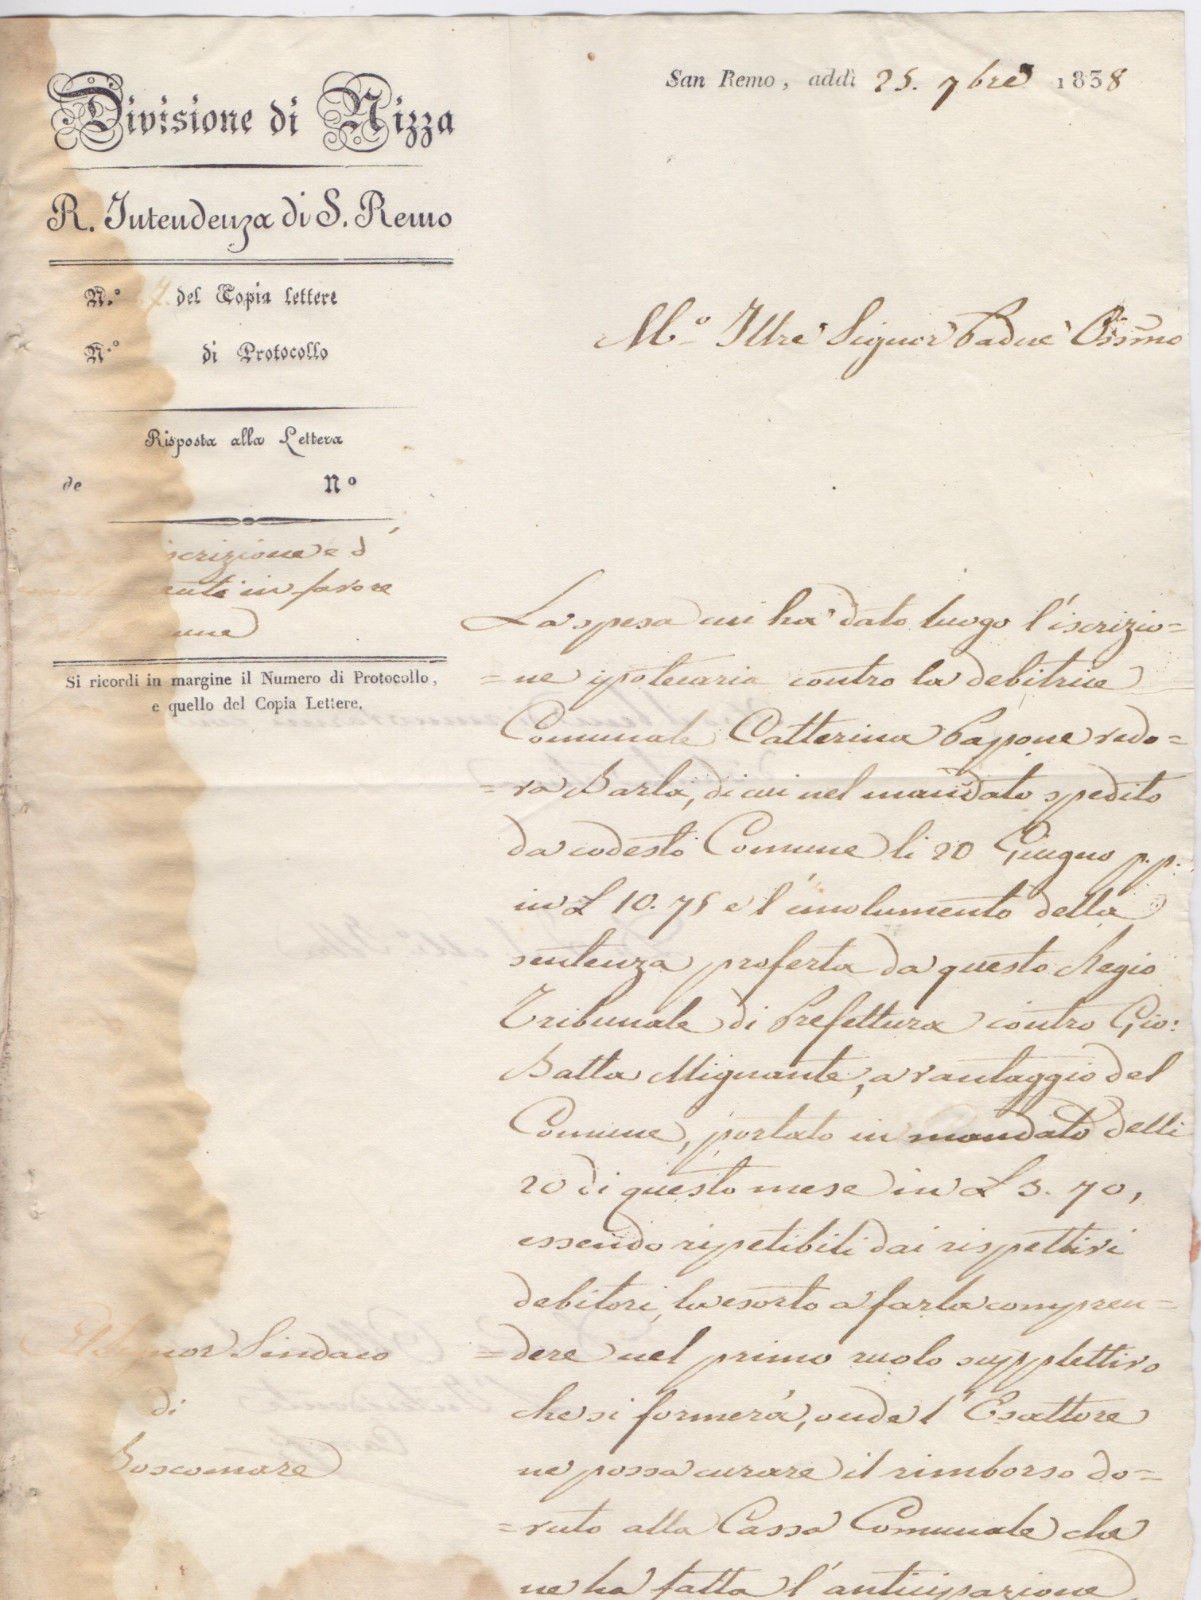 Divisione di Nizza
R. Intendenza di S. Remo
N.º 7. del Copia lettere
N.º di Protocollo
Risposta alla Lettera
de Nº
scrizione e d'
enti in favore
une
Si ricordi in margine il Numero di Protocollo,
e quello del Copia Lettere.
Signor Sindaco
di
Boscomare
San Remo, addì 25. 7bre 1838
M.º Illre Signor Padne Ossmo
La spesa cui ha dato luogo l'iscrizio=
=ne ipotecaria contro la debitrice
Comunale Catterina Papone vedo=
=va Barla, di cui nel mandato spedito
da codesto Comune li 20 Giugno p. p.
in £ 10. 75 e l'emolumento della
sentenza proferta da questo Regio
Tribunale di Prefettura contro Gio:
Batta Mignante, a vantaggio del
Comune, portato in mandato delli
20 di questo mese in £ 3. 70,
essendo ripetibili dai rispettivi
debitori, la esorto a farla compren=
=dere nel primo ruolo supplettivo
che si formerà, onde l'Esattore
ne possa curare il rimborso do=
=vuto alla Cassa Comunale che
ne ha fatta l'anticipazione,